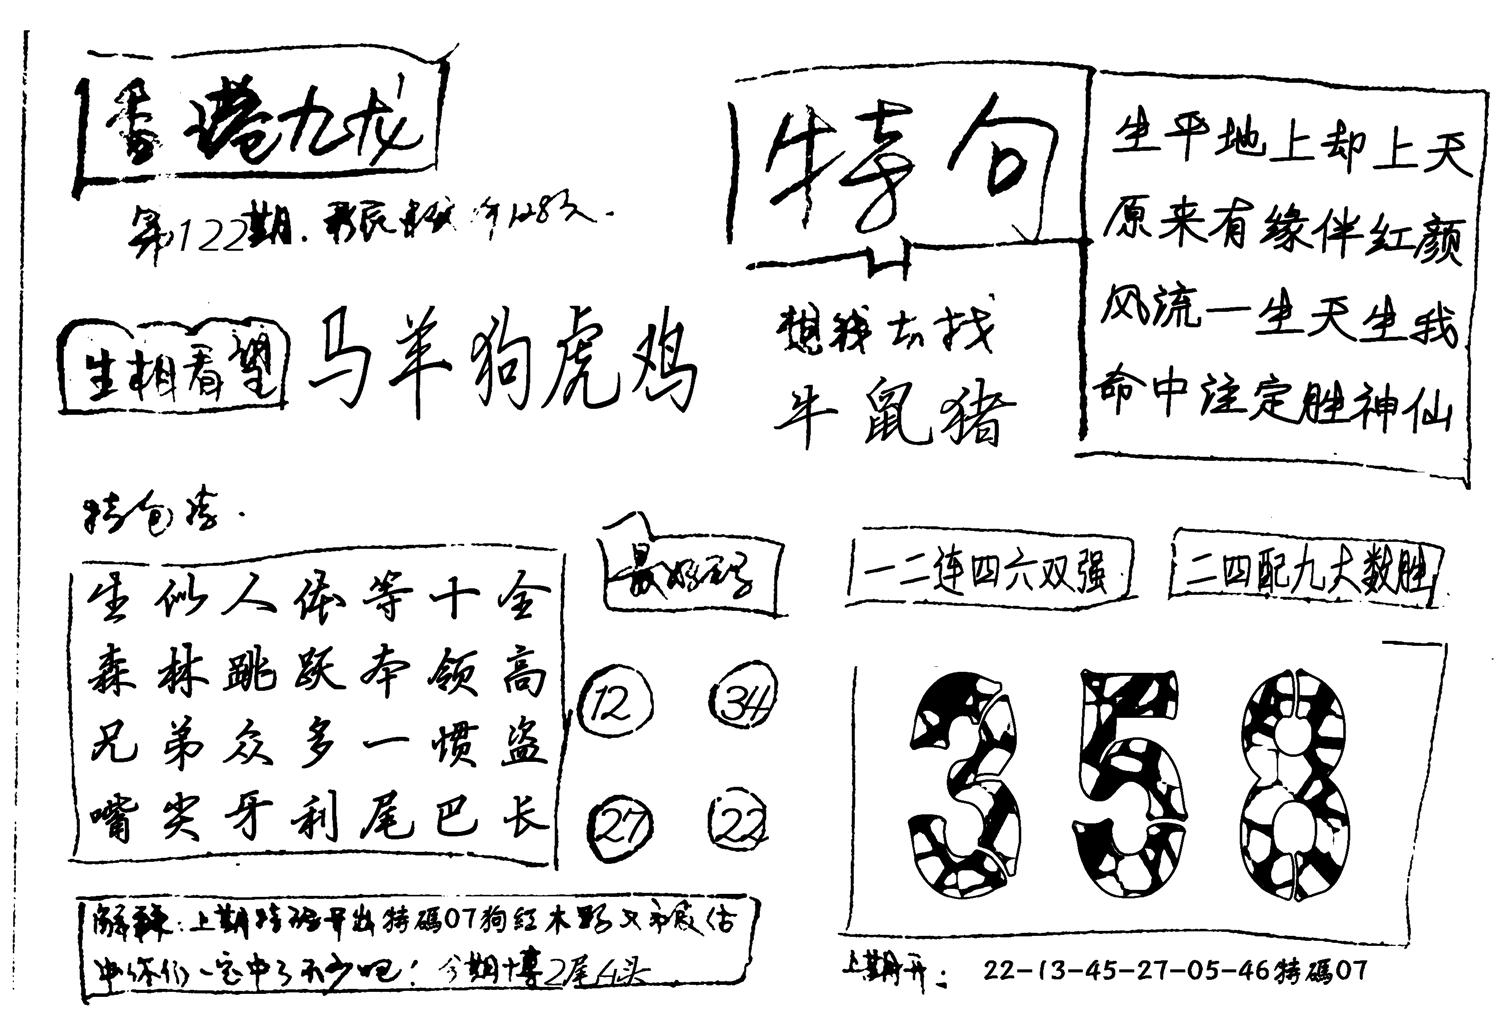 香港九龙
第122期.
生相看望
马羊狗虎鸡
特句
想我去找
牛鼠猪
生平地上却上天
原来有缘伴红颜
风流一生天生我
命中注定胜神仙
生似人体等十全
森林跳跃本领高
兄弟众多一惯盗
嘴尖牙利尾巴长
最好码
12 34
27 22
一二连四六双强
二四配九大数胜
358
解释:上期特码开出特碼07狗红木
你们一定中了不少吧!今期博2尾
上期开: 22-13-45-27-05-46特碼07